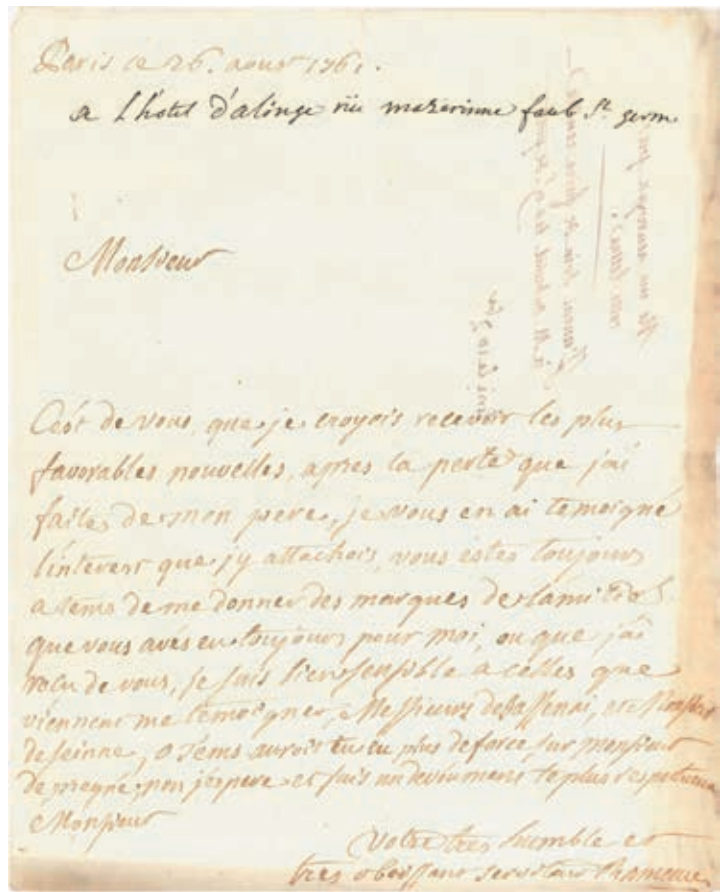 Paris ce 26. aoust 1761.
a L'hotel d'alinge rüe mazarinne faub St. germ
Monsieur
Cest de vous, que je croyois recevoir les plus
favorables nouvelles, apres la perte que j'ai
faite de mon pere, je vous en ai temoigné
l'interest que j'y attachois, vous estes toujours
a tems de me donner des marques de lamitié
que vous avés eu toujours pour moi, ou que j'ai
recu de vous, je suis bien sensible a celles que
viennent me temoigner, Messieurs de Sassenai, et
de seinne, o tems auroit tu eu plus de force sur monsieur
de non j'espere et suis un devoument le plus respectueux
Monsieur
Votre tres humble et
tres obeissant serviteur